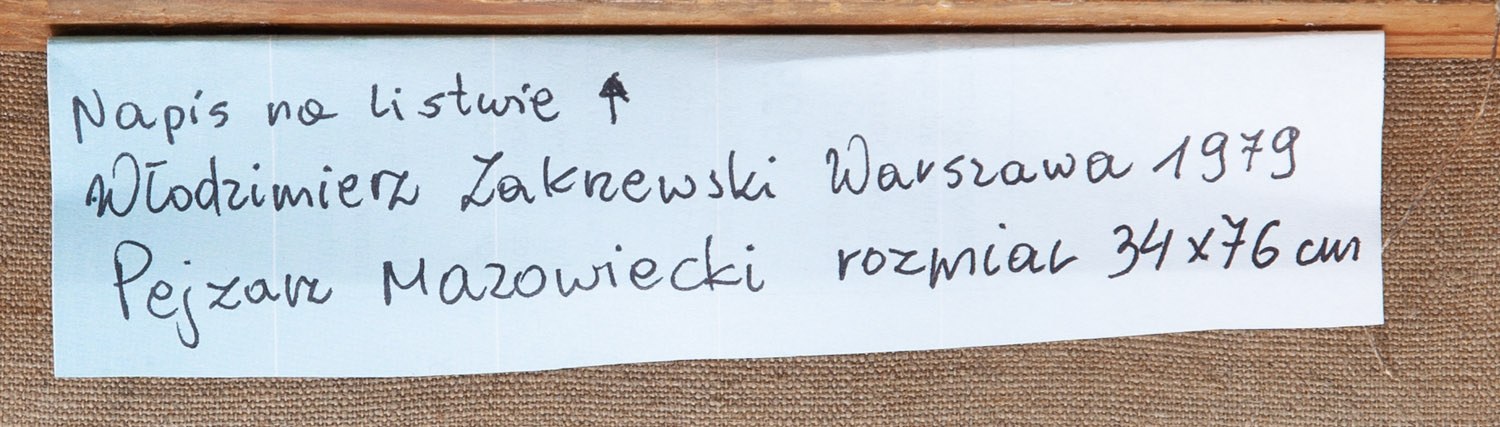 Napis na listwie ↑
Włodzimierz Zakrzewski Warszawa 1979
Pejzarz Mazowiecki rozmiar 34x76 cm